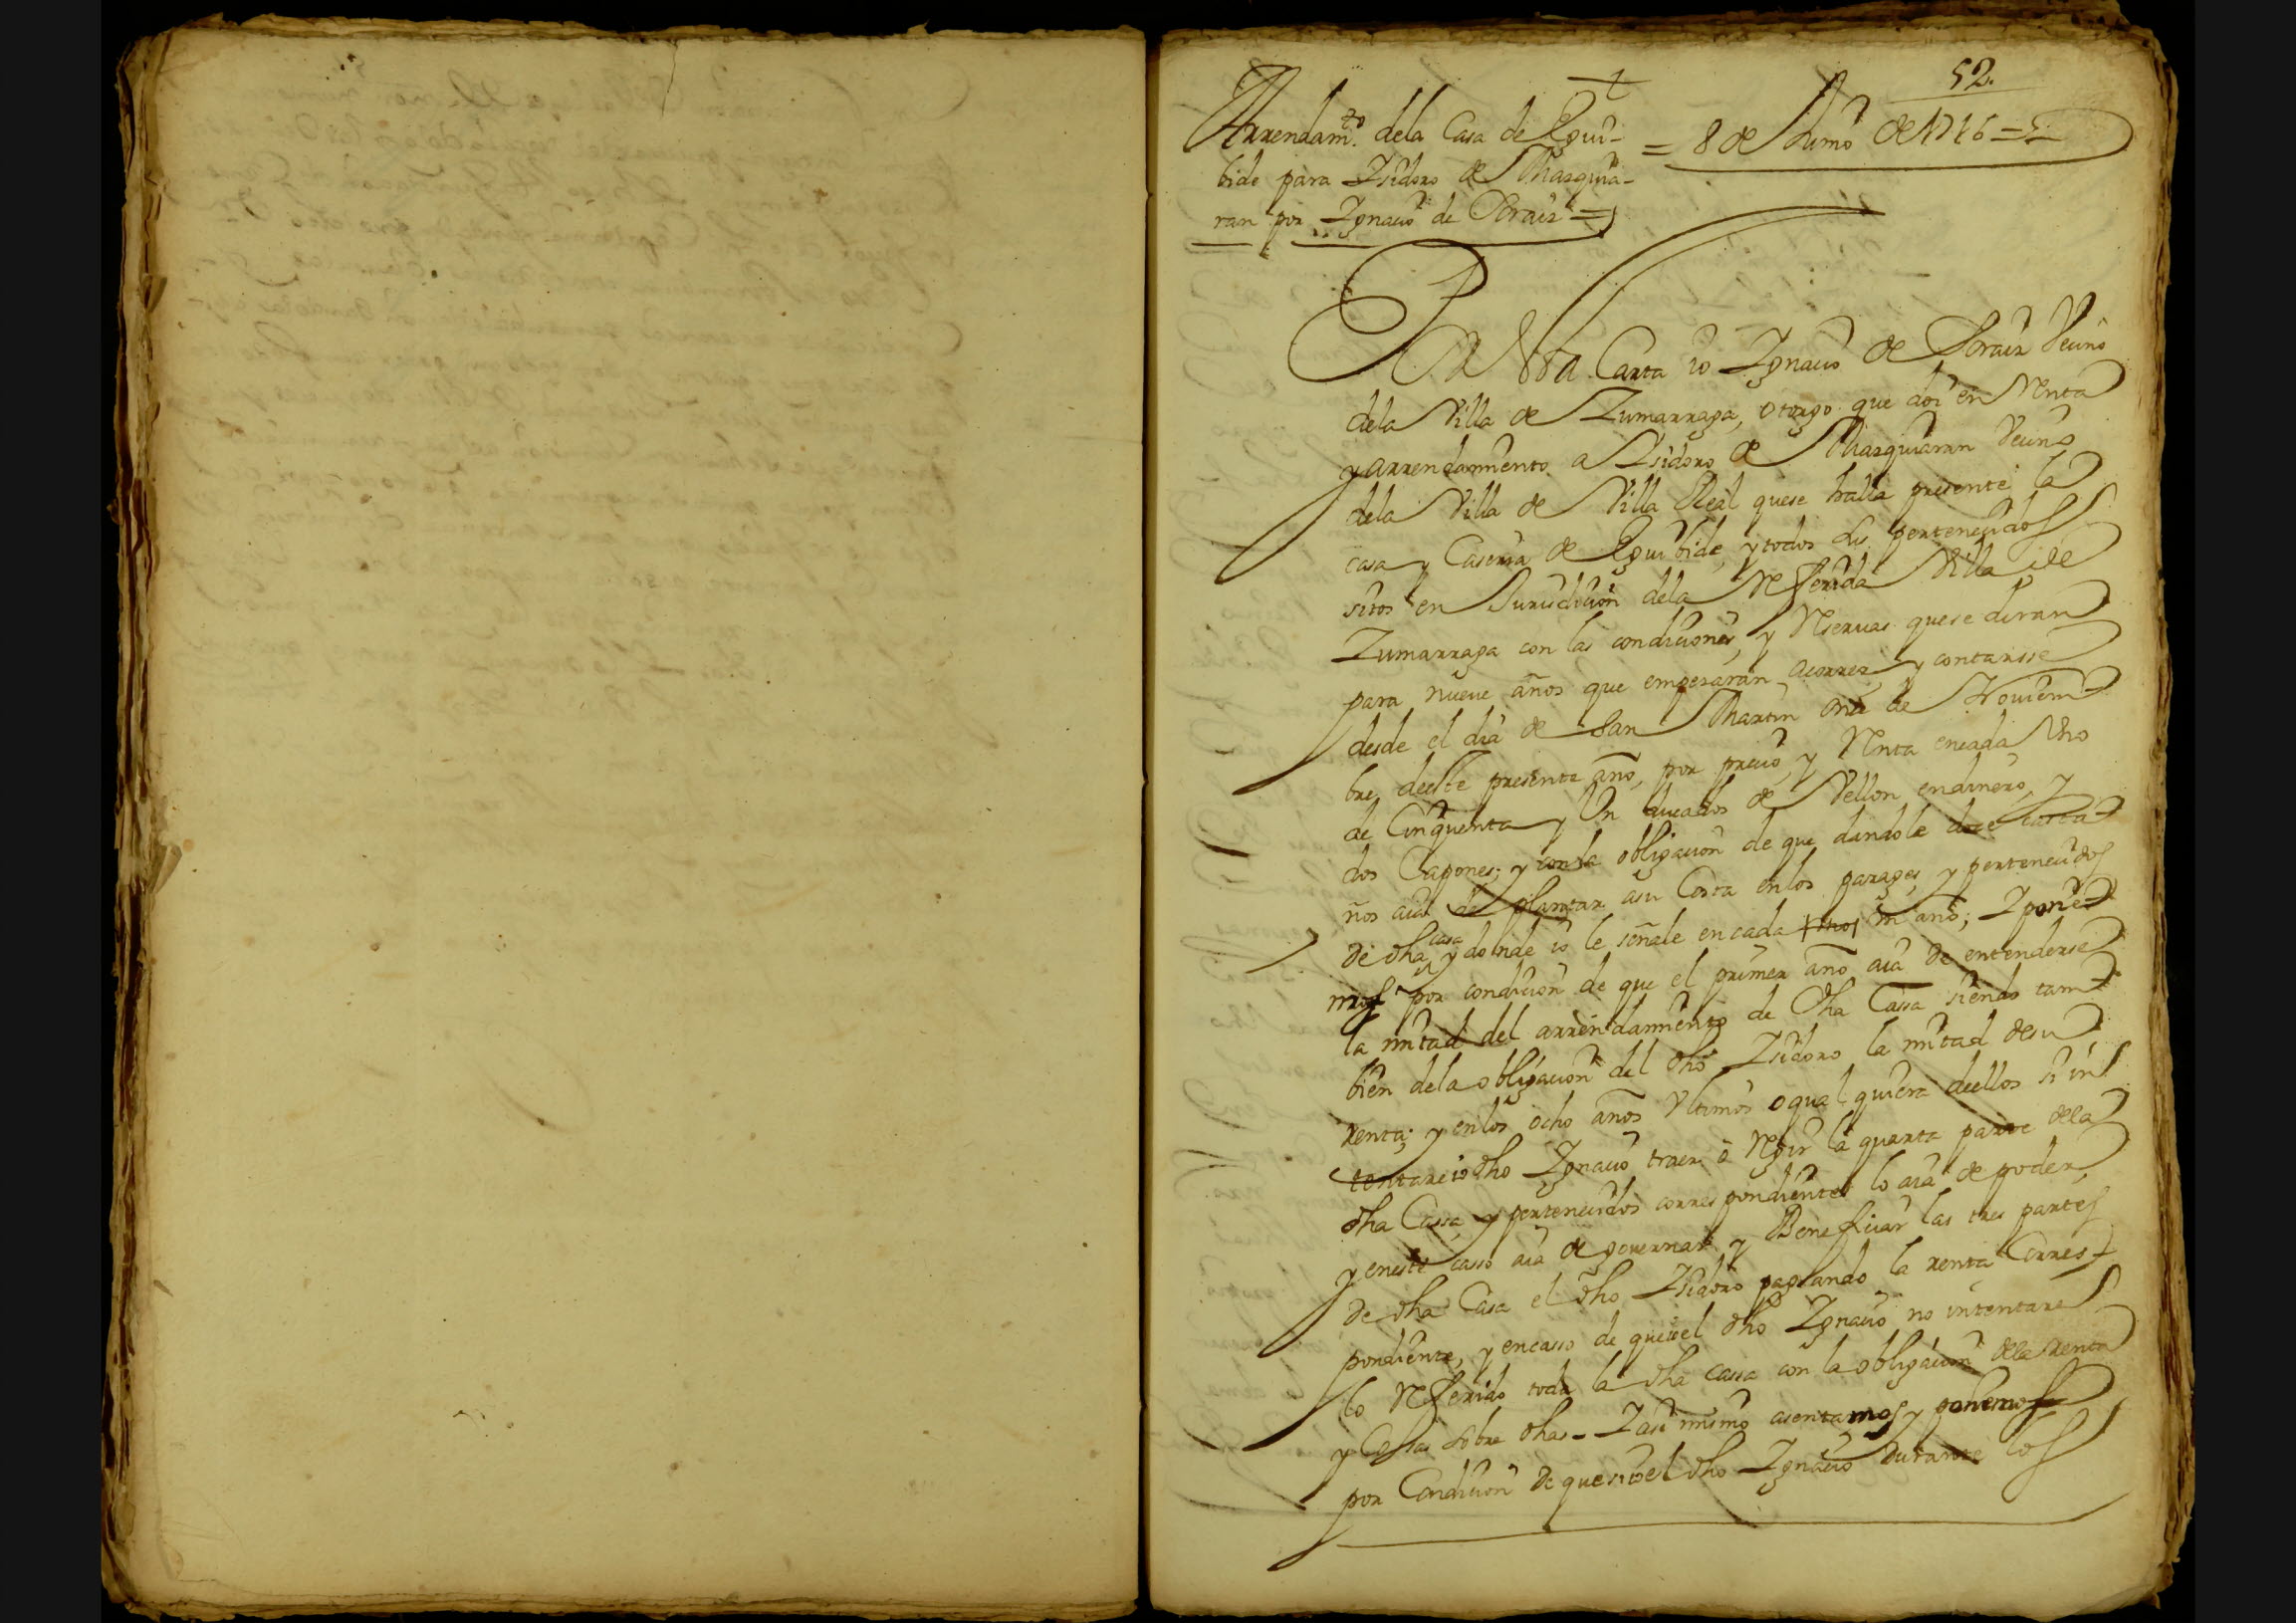 52.
Arrendam.to dela Casa de Egui-
bide para Isidoro de Mazquia-
ran por Ignacio de Oraiz =
= 8 de Junio de 1716 =
Por Esta Carta io Ignacio de Oraiz Vecino
dela Villa de Zumarraga, otorgo que doi en Renta
y arrendamiento a Isidoro de Mazquiaran Vecino
dela Villa de Villa Real quese halla presente la
casa y Caseria de Eguibide, y todos sus pertenecidos
sitos en Jurisdicion dela Referida Villa de
Zumarraga con las condiciones, y Reseruas quese diran
para nueue años que empesaran acorrer, y contarsse
desde el dia de San Martin onze de Nouiem-
bre, deeste presente año, por precio, y Renta encada Vno
de Cinquenta y Vn ducados de Vellon endinero, y
dos Capones; y con la obligacion de que dandole doce casta-
ños aia de plantar asu Costa enlos parages, y pertenecidos
de dha casa y donde io le señale en cada un año; I pone-
mos por condicion de que el primer año aia de entenderse
la mitad del arrendamiento de dha Cassa siendo tam-
bien dela obligacion del dho Isidoro la mitad desu
renta; y enlos ocho años Vltimos o qual quiera deellos si in-
tentare io dho Ignacio traer o Regir la quarta parte dela
dha Cassa, y pertenecidos correspondientes lo aia de poder,
y eneste casso aia de gouernar y Beneficiar las tres partes
de dha Casa el dho Isidoro pagando la renta Corres-
pondiente, y encasso de que io el dho Ignacio no intentare
lo Referido toda la dha cassa con la obligacion dela Renta
y Cossas sobre dhas - I asi mismo asentamos y ponemos
por Condicion de que si io el dho Ignacio durante los